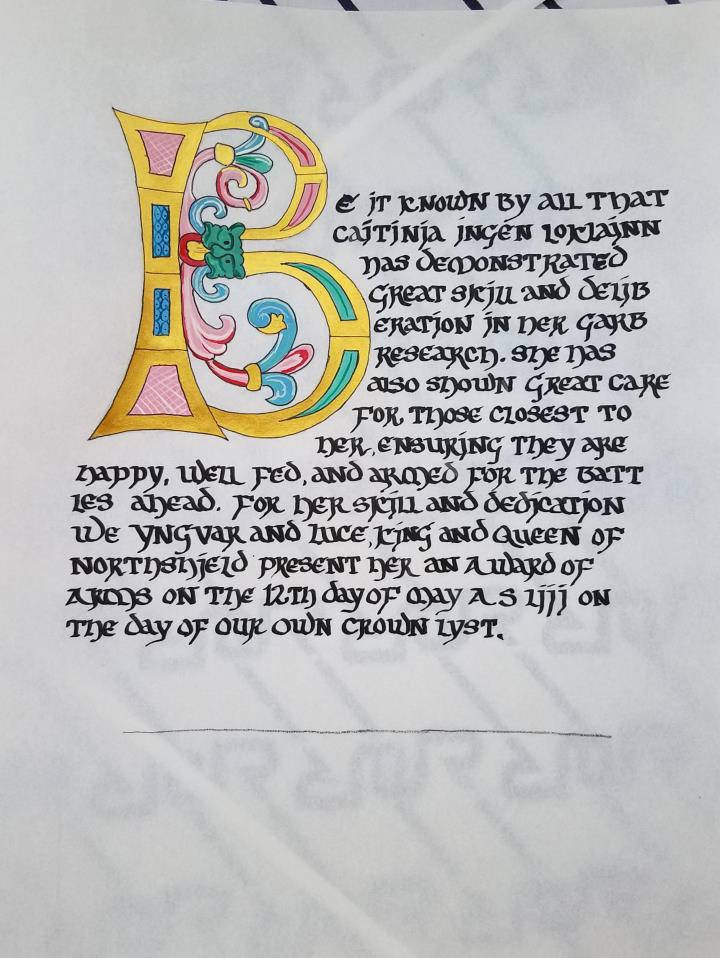 BE IT KNOWN BY ALL THAT
CAITINIA INGEN LOKLAINN
HAS DEMONSTRATED
GREAT SKILL AND DELIB
ERATION IN HER GARB
RESEARCH. SHE HAS
ALSO SHOWN GREAT CARE
FOR, THOSE CLOSEST TO
HER, ENSURING THEY ARE
HAPPY, WELL FED, AND ARMED FOR THE BATT
LES AHEAD. FOR HER SKILL AND DEDICATION
WE YNGVAR AND LUCE, KING AND QUEEN OF
NORTHSHIELD PRESENT HER AN AWARD OF
ARMS ON THE 12TH DAY OF MAY A S LIII ON
THE DAY OF OUR OWN CROWN LYST.